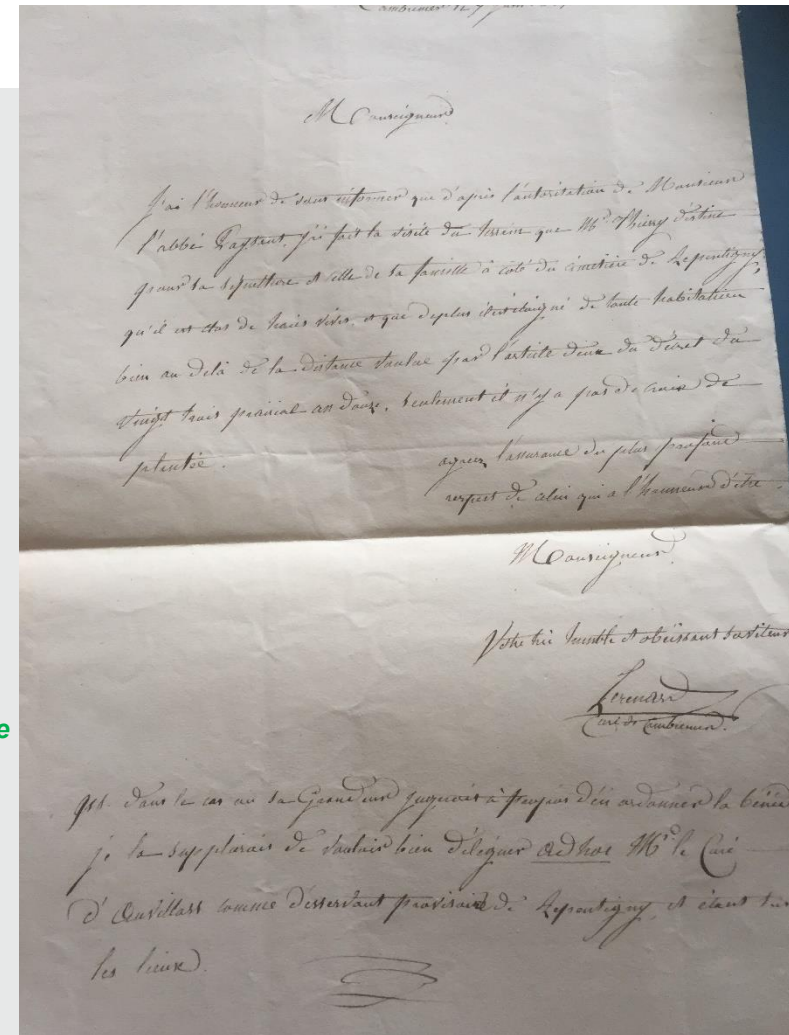 Cambremer le
Monseigneur
J'ai l'honneur de vous informer que d'après l'autorisation de Monsieur
l'abbé j'ai fait la visite du terrein que Mr Thierry destine
pour sa sépulture et celle de sa famille à coté du cimetière de Repentigny,
qu'il est clos de haies vives, et que deplus il est éloigné de toute habitation
bien au delà de la distance voulue par l'article deux du décret du
vingt trois prairial an douze. Seulement il n'y a pas de croix de
plantée.
agréez l'assurance du plus profond
respect de celui qui a l'honneur d'être
Monseigneur
Votre très humble et obéissant serviteur
Curé de Cambremer.
dans le cas ou sa Grandeur jugerait à propos d'en ordonner la béné
je la supplierais de vouloir bien déléguer ad hoc Mr le Curé
d'Auvillars comme desservant provisoire de Repentigny, et étant
les lieux.
e